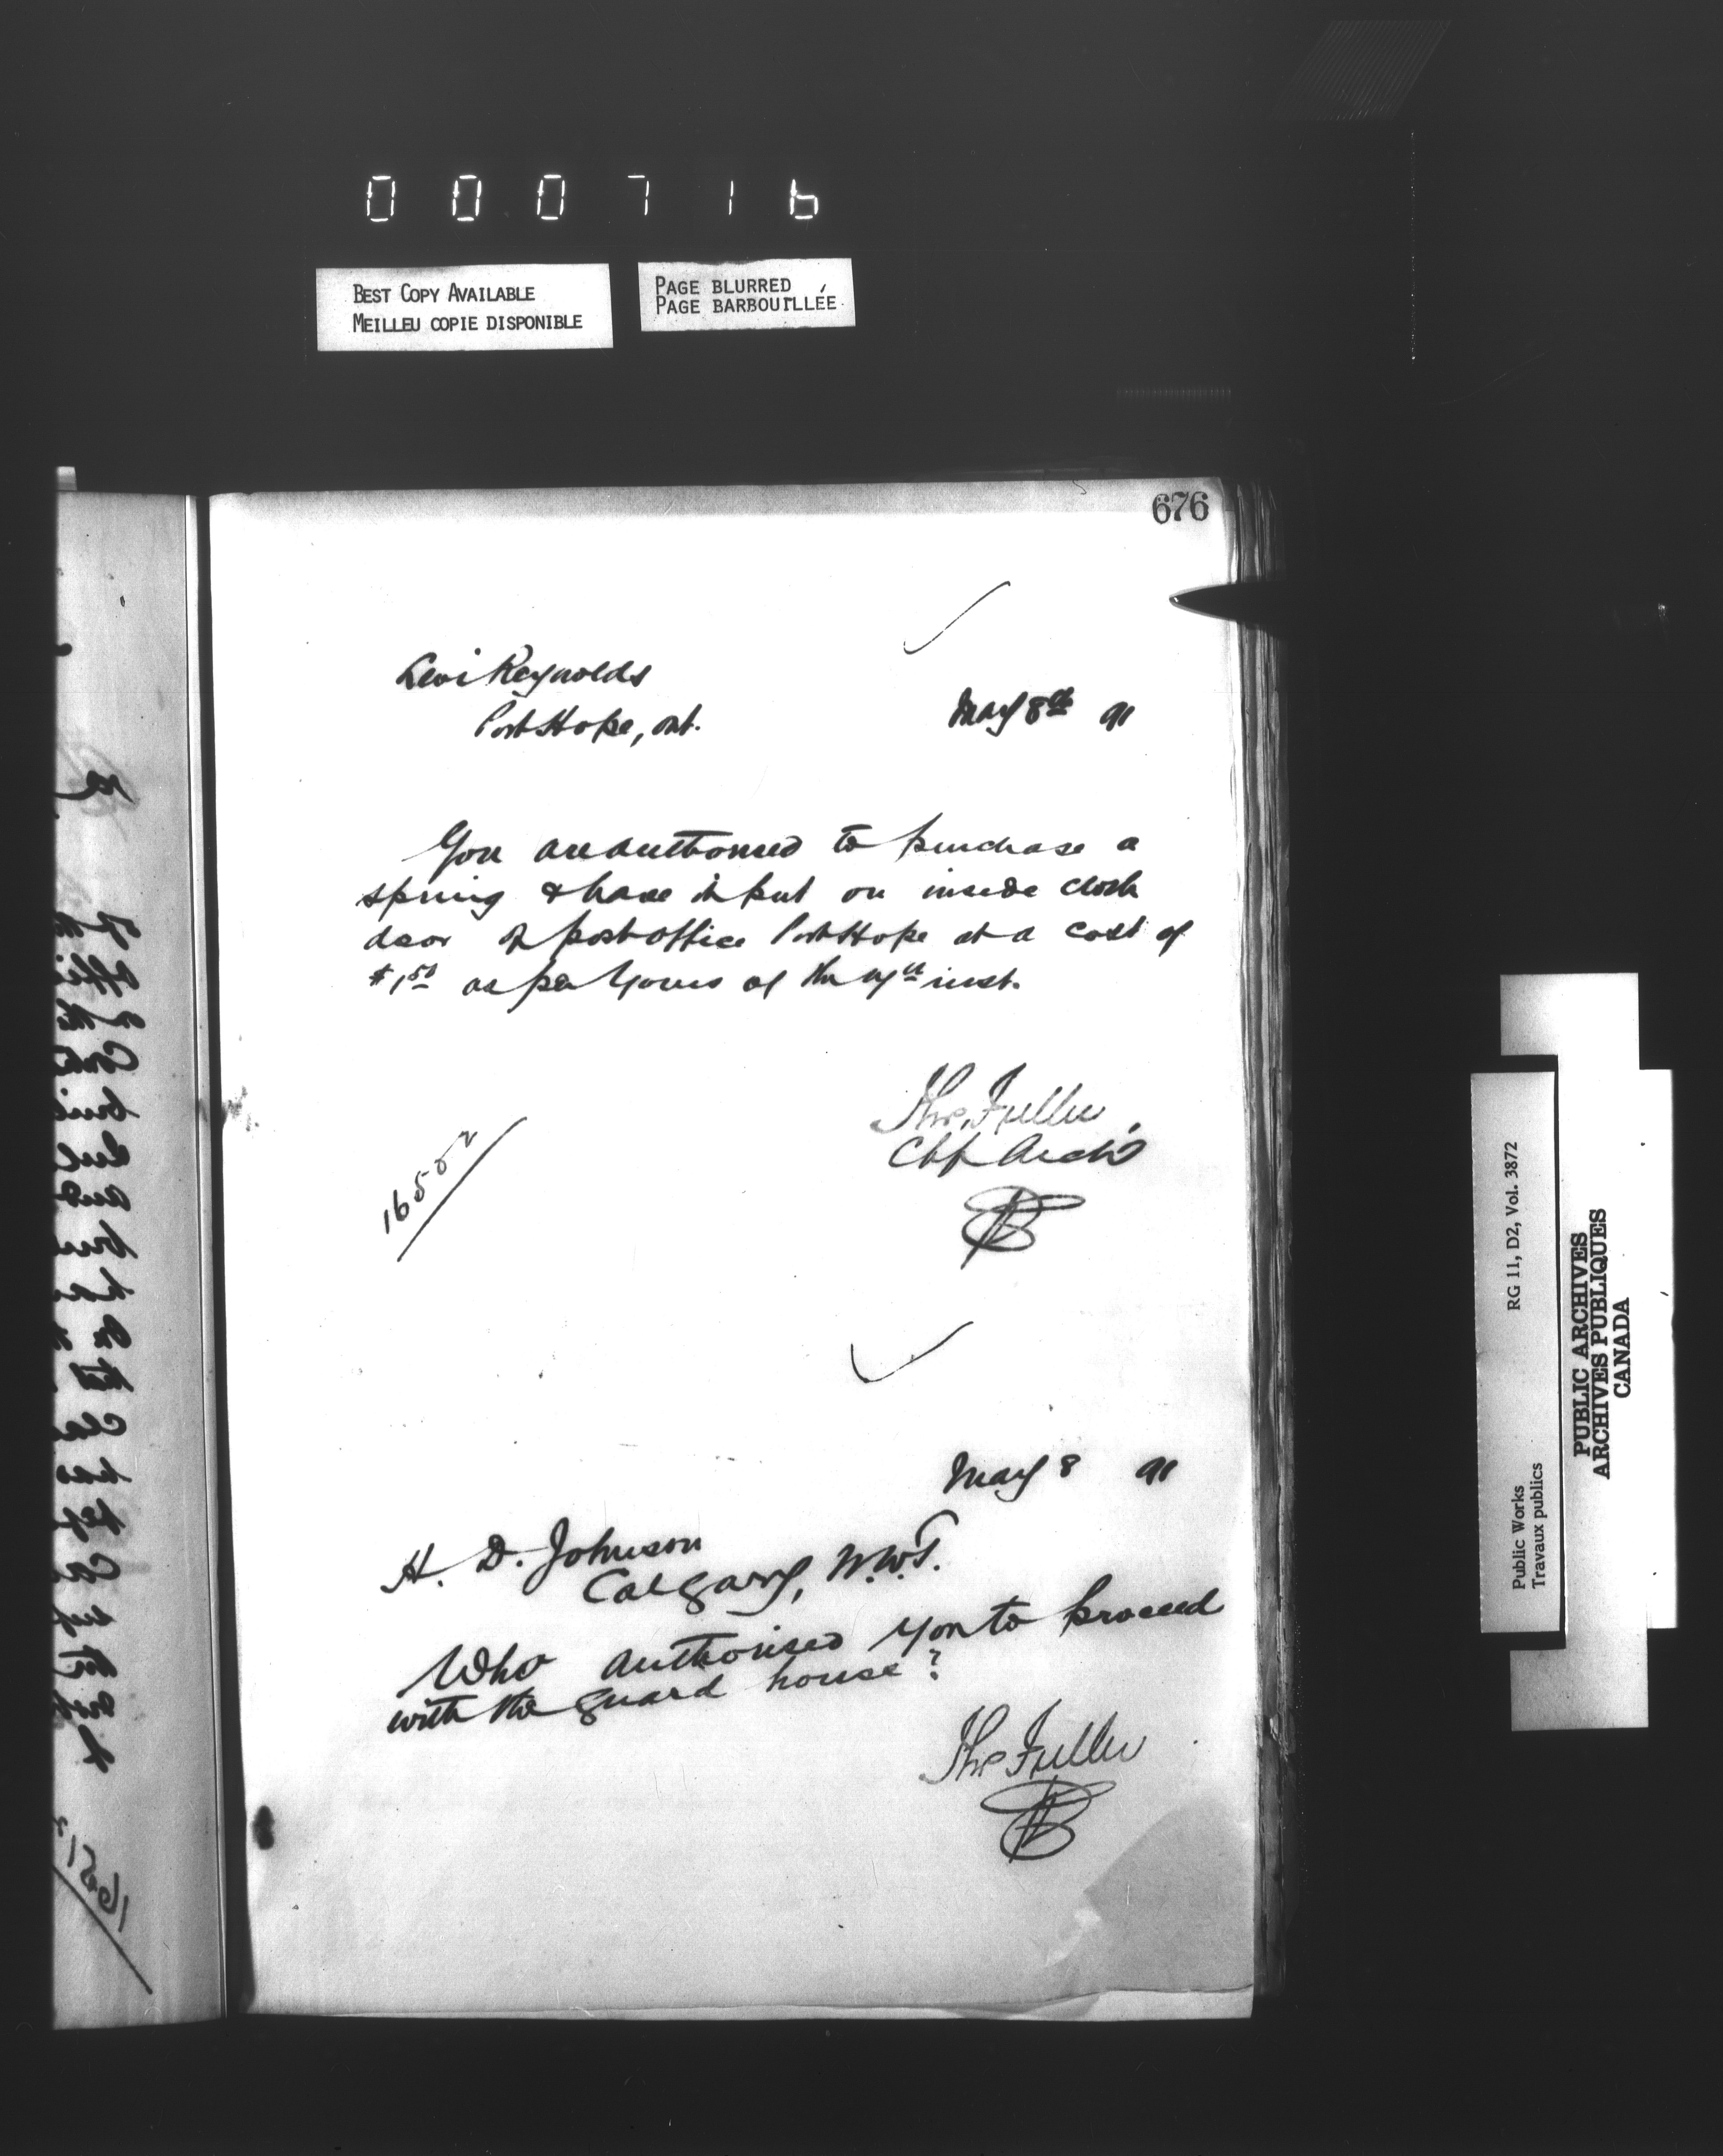 000716
BEST COPY AVAILABLE
MEILLEU COPIE DISPONIBLE
PAGE BLURRED
PAGE BARBOUILLÉE
676
Levi Reynolds
Port Hope, Ont.
May 8th 91
You are authorised to purchase a
spring & have it put on inside cloth
door of post office Port Hope at a cost of
$1.50 as per yours of the inst.
Thos. Fuller,
Chf Archt
May 8 91
H. D. Johnson
Calgary, N.W.T.
Who authorised you to proceed
with the guard house?
Thos Fuller
Public Works
Travaux publics
RG 11, D2, Vol. 3872
PUBLIC ARCHIVES
ARCHIVES PUBLIQUES
CANADA